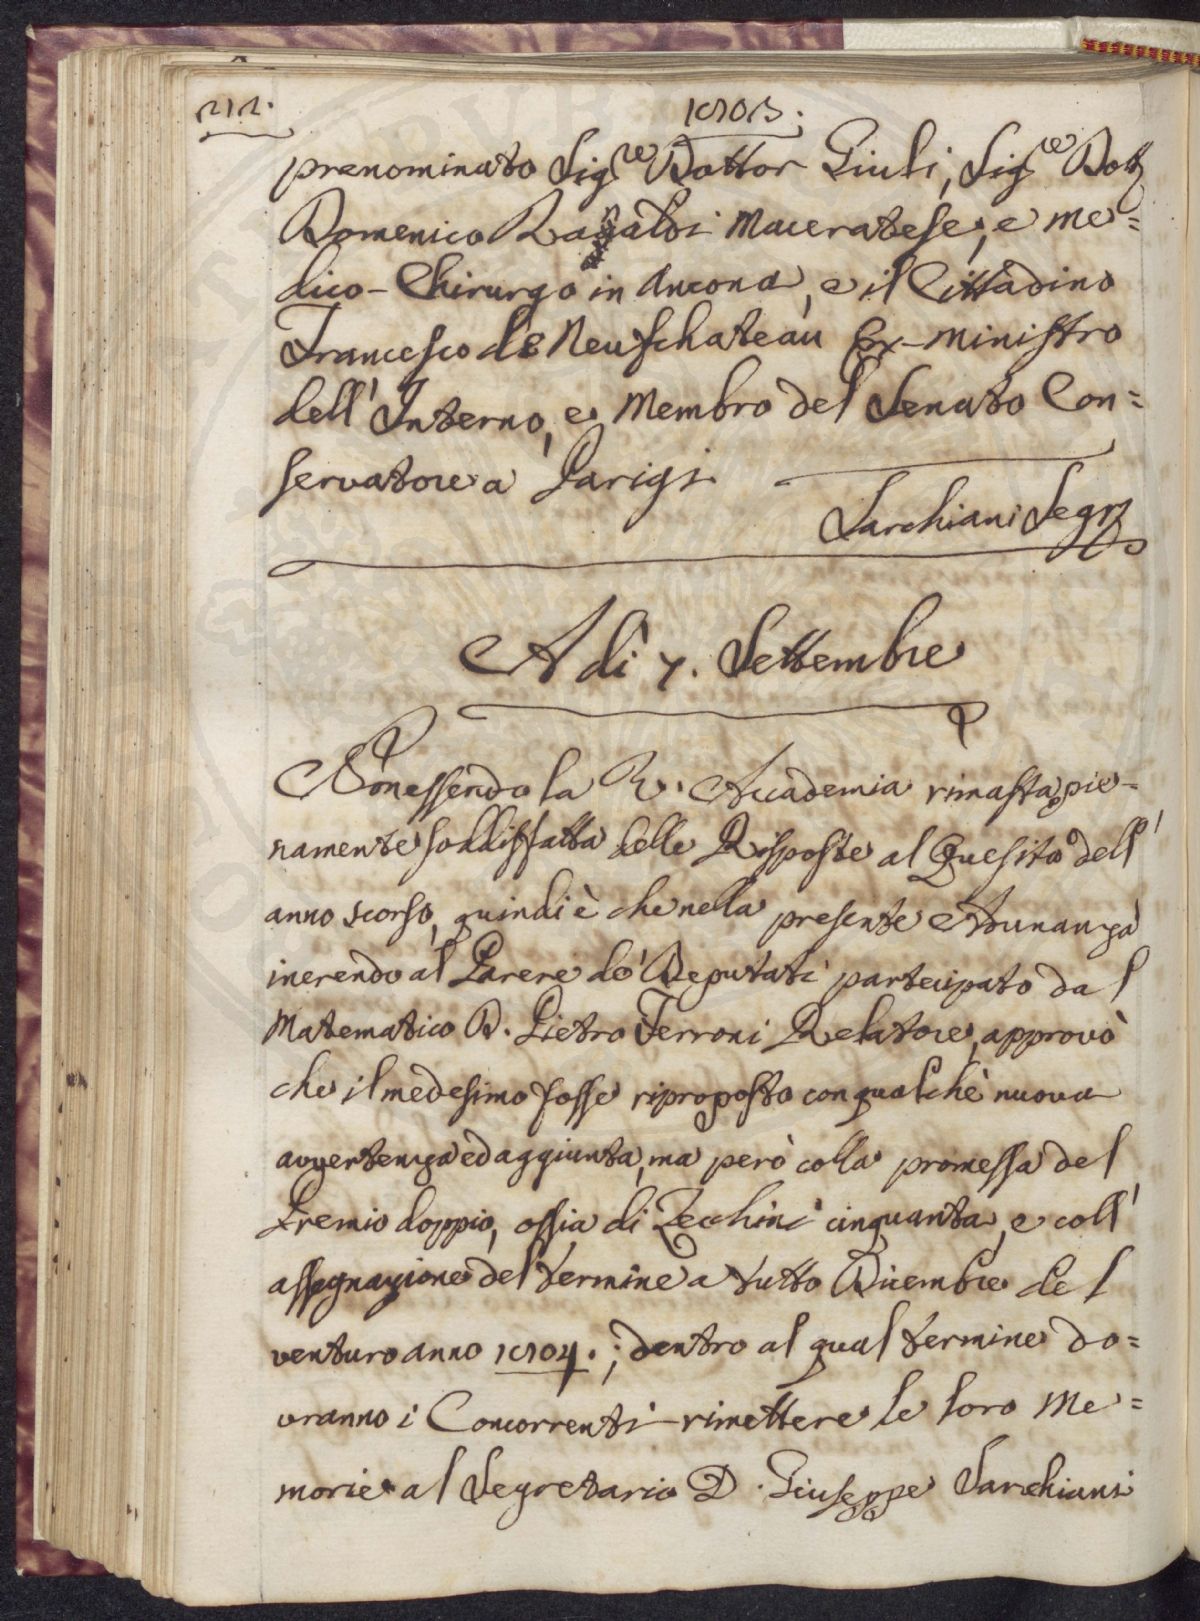 212. 1803.
prenominato Sig.re Dottor Giuli, Sig.re Dott.
Domenico Ragaldi Maceratese, e Me=
dico-Chirurgo in Ancona, e il Cittadino
Francesco de Neufchateau Ex-Ministro
dell'Interno, e Membro del Senato Con=
servatore a Parigi
Sarchiani Segr.
A dì 7. Settembre
Non essendo la R. Accademia rimasta pie-
namente soddisfatta delle Risposte al Quesito dell'
anno scorso, quindi è che nella presente Adunanza
inerendo al Parere de' Deputati partecipato dal
Matematico D. Pietro Ferroni Relatore, approvò
che il medesimo fosse riproposto con qualche nuova
avvertenza ed aggiunta, ma però colla promessa del
Premio doppio, ossia di Zecchini cinquanta, e coll'
assegnazione del termine a tutto Dicembre del
venturo anno 1804.; dentro al qual termine do=
vranno i Concorrenti rimettere le loro Me=
morie al Segretario D. Giuseppe Sarchiani